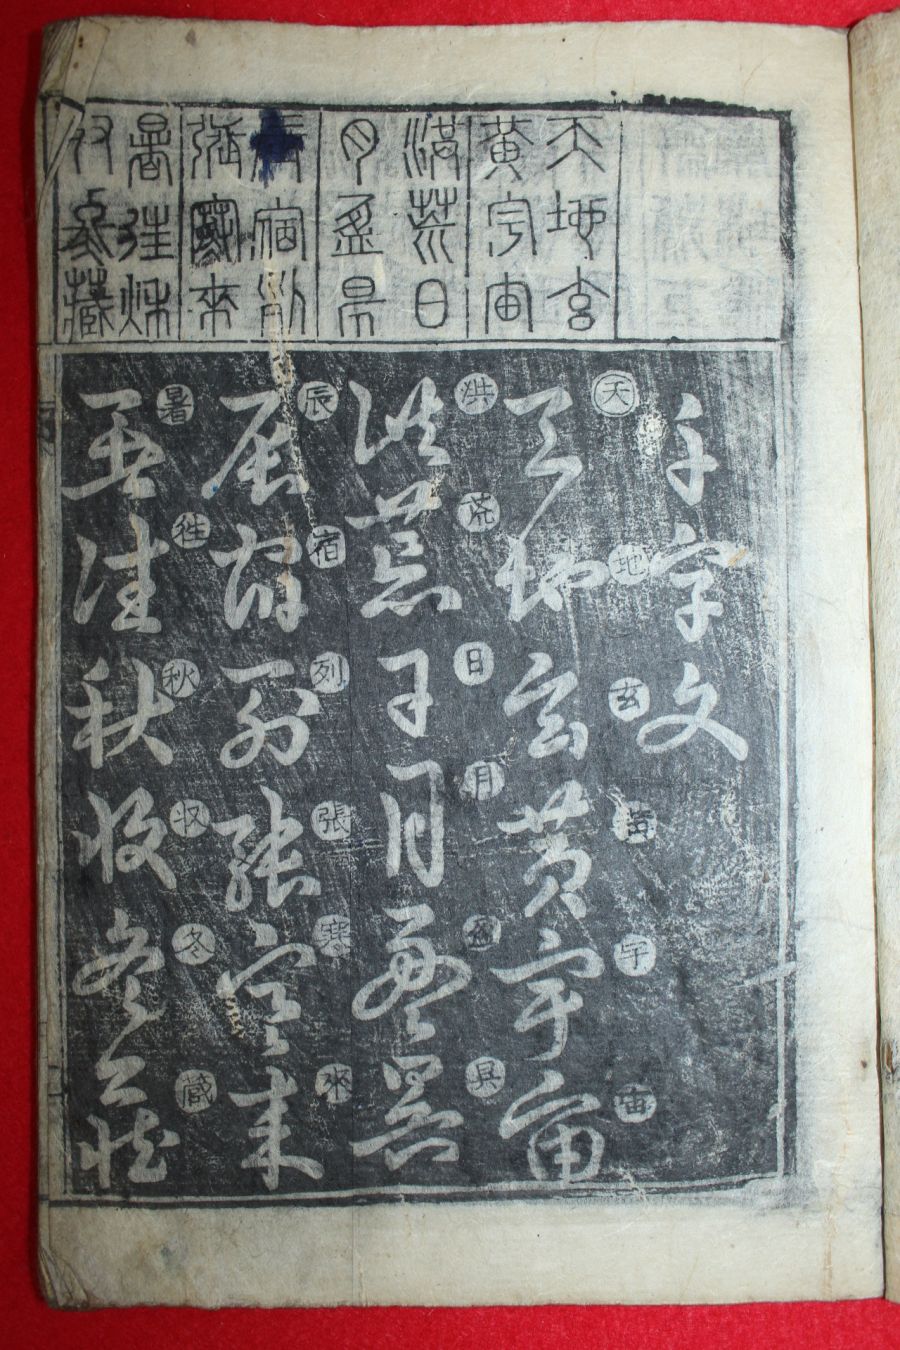 天地玄
黃宇宙
洪荒日
月盈昃
辰宿列
張寒來
暑往秋
收冬藏
千字文
天地玄黃宇宙
天地玄黃宇宙
洪荒日月盈昃
洪荒日月盈昃
辰宿列張寒來
辰宿列張寒來
暑往秋収冬藏
暑往秋收冬藏